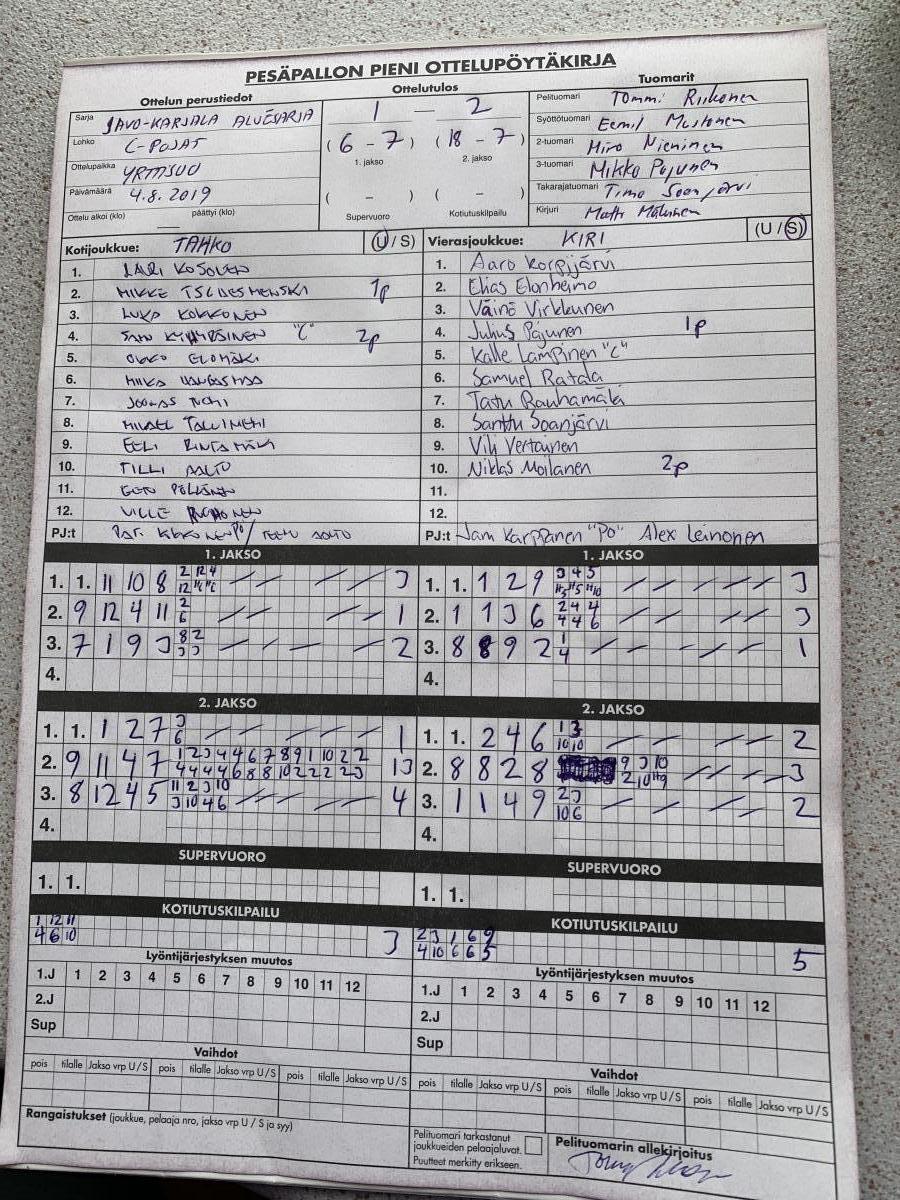 PESÄPALLON PIENI OTTELUPÖYTÄKIRJA
Ottelun perustiedot
Sarja SAVO-KARJALA ALUESARJA
Lohko C-POJAT
Ottelupaikka YRTTISUO
Päivämäärä 4.8.2019
Ottelu alkoi (klo) päättyi (klo)
Ottelutulos
1 — 2
(6 - 7) (18 - 7)
1. jakso 2. jakso
( - ) ( - )
Supervuoro Kotiutuskilpailu
Tuomarit
Pelituomari Tommi Riikonen
Syöttötuomari Eemil Mustonen
2-tuomari Miro Nieminen
3-tuomari Mikko Pajunen
Takarajatuomari Timo Soanjärvi
Kirjuri Matti
Kotijoukkue: TAHKO (U / S)
1. LARI KOSOVEN
2. MIKKE 1p
3. LUKA KOKKONEN
4. "C" 2p
5. OKKO ELOMÄKI
6. MIIKA
7. JOONAS
8. MIKAEL
9. EELI RINTAMÄKI
10. TILLI AALTO
11. EETU PÖLLÄNEN
12. VILLE
PJ:t AALTO
Vierasjoukkue: KIRI (U / S)
1. Aaro Korpijärvi
2. Elias Elonheimo
3. Väinö Virkkunen
4. Julius Pajunen 1p
5. Kalle Lampinen "C"
6. Samuel Ratala
7. Tatu Rauhamäki
8. Santtu Soanjärvi
9. Vili Vertainen
10. Niklas Moilanen 2p
11.
12.
PJ:t Jani Karppanen "PO" Alex Leinonen
1. JAKSO
1. 1. 11 10 8 3
2. 9 12 4 11 2 6 1
3. 7 1 9 3 8 2 3 3 2
4.
1. JAKSO
1. 1. 1 2 9 3 4 5 3
2. 1 1 3 6 2 4 4 4 4 6 3
3. 8 8 9 2 1 4 1
4.
2. JAKSO
1. 1. 1 2 7 3 6 1
2. 9 11 4 7 1 2 3 4 4 6 7 8 9 1 10 2 2
4 4 4 4 6 8 8 10 2 2 2 2 3 13
3. 8 12 4 5 11 2 3 10
3 10 4 6 4
4.
2. JAKSO
1. 1. 2 4 6 1 3 10 10 2
2. 8 8 2 8 9 3 10 3
3. 1 1 4 9 2 3 10 6 2
4.
SUPERVUORO
1. 1.
SUPERVUORO
1. 1.
KOTIUTUSKILPAILU
1 12 11
4 6 10 3
KOTIUTUSKILPAILU
2 3 1 6 9
4 10 6 6 5 5
Lyöntijärjestyksen muutos
1.J 1 2 3 4 5 6 7 8 9 10 11 12
2.J
Sup
Lyöntijärjestyksen muutos
1.J 1 2 3 4 5 6 7 8 9 10 11 12
2.J
Sup
Vaihdot
pois tilalle Jakso vrp U / S pois tilalle Jakso vrp U / S pois tilalle Jakso vrp U / S
Vaihdot
pois tilalle Jakso vrp U / S pois tilalle Jakso vrp U / S pois tilalle Jakso vrp U / S
Rangaistukset (joukkue, pelaaja nro, jakso vrp U / S ja syy)
Pelituomari tarkastanut
joukkueiden pelaajaluvat.
Puutteet merkitty erikseen.
Pelituomarin allekirjoitus